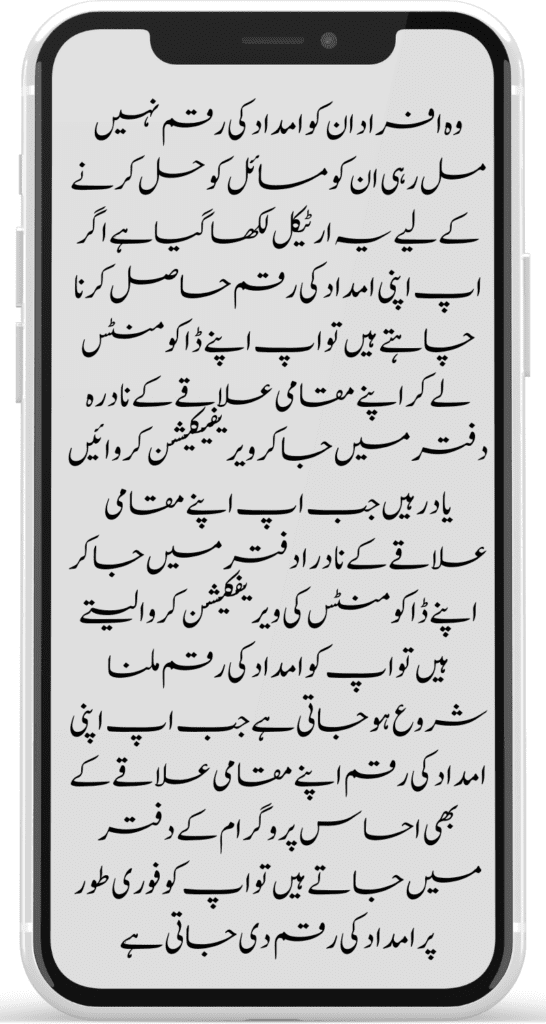 وہ افراد ان کو امداد کی رقم نہیں
مل رہی ان کو مسائل کو حل کرنے
کے لیے یہ ارٹیکل لکھا گیا ہے اگر
اپ اپنی امداد کی رقم حاصل کرنا
چاہتے ہیں تو اپ اپنے ڈاکومنٹس
لے کر اپنے مقامی علاقے کے نادرہ
دفتر میں جا کر ویریفیکیشن کروائیں
یاد رہیں جب اپ اپنے مقامی
علاقے کے نادرا دفتر میں جا کر
اپنے ڈاکومنٹس کی ویریفکیشن کروا لیتے
ہیں تو اپ کو امداد کی رقم ملنا
شروع ہو جاتی ہے جب اپ اپنی
امداد کی رقم اپنے مقامی علاقے کے
بھی احساس پروگرام کے دفتر
میں جاتے ہیں تو اپ کو فوری طور
پر امداد کی رقم دی جاتی ہے